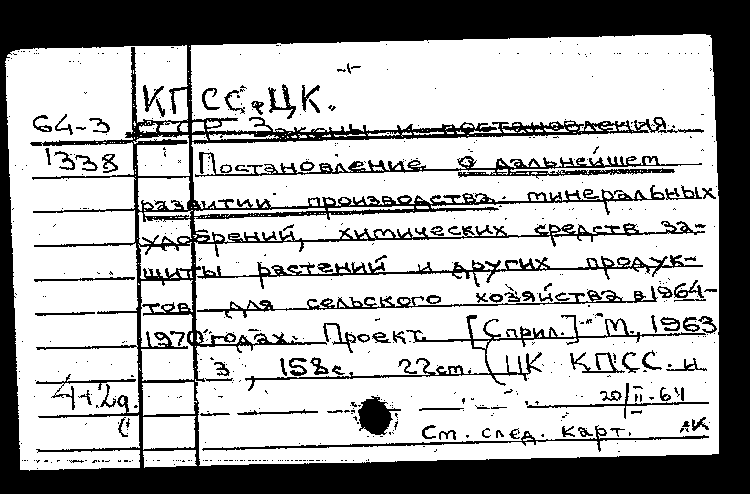 КПСС. ЦК.
64-3 СССР. Законы и постановления.
1338 Постановление о дальнейшем
развитии производства минеральных
удобрений, химических средств за-
щиты растений и других продук-
тов для сельского хозяйства в 1964-
1970 годах. Проект. [С прил.] М., 1963
3, 158с. 22см. (ЦК КПСС. и
20/II-64
См. след. карт. АК